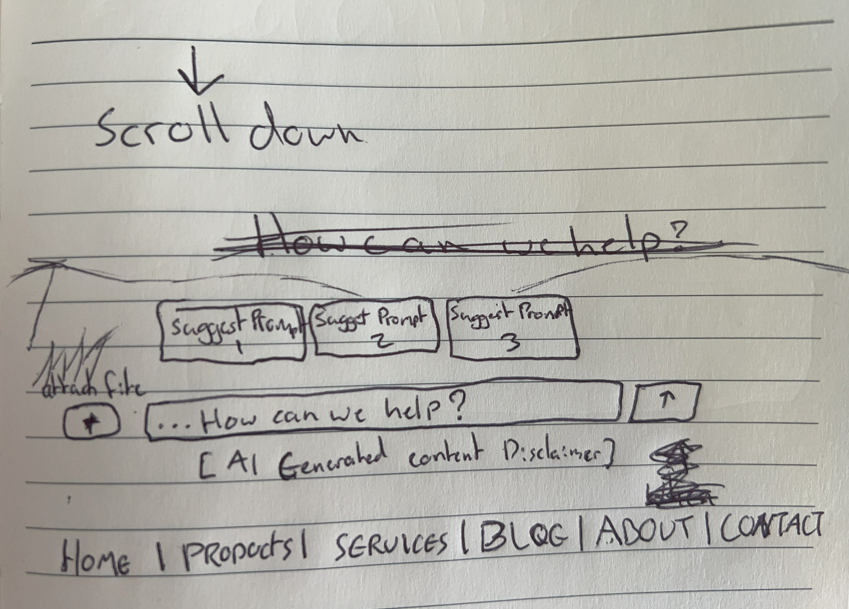 ↓
Scroll down
How can we help?
Suggest Prompt 1
Suggest Prompt 2
Suggest Prompt 3
attach file
+
...How can we help?
↑
[AI Generated content Disclaimer]
HOME | PRODUCTS | SERVICES | BLOG | ABOUT | CONTACT